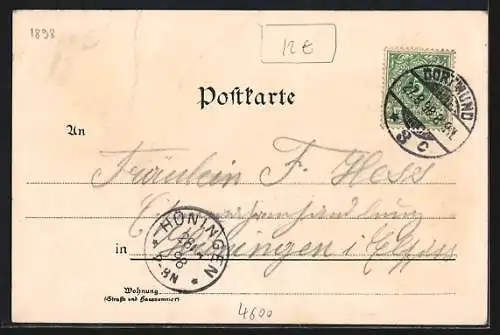 1898
12 €
Postkarte
DORTMUND
22.8.98.
* 3 C
An
Fräulein F. Hess
HÜNINGEN
98
8-9N
in Hüningen i. Elsass
Wohnung
(Straße und Hausnummer)
4600